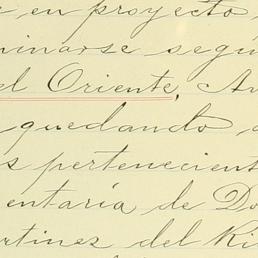 e en proyecto,
minarse segú
el Oriente, An
quedando a
s pertenecient
entaría de Do
artinez del Ri